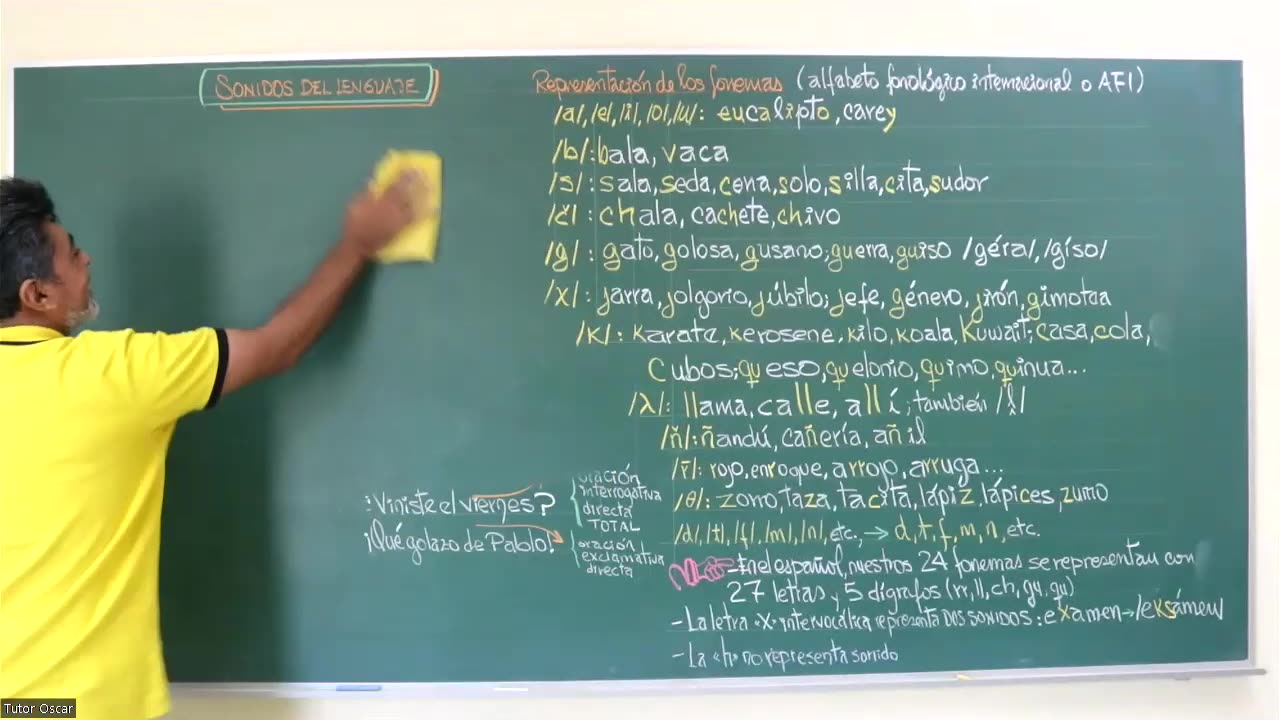 SONIDOS DEL LENGUAJE
Representación de los fonemas (alfabeto fonológico internacional o AFI)
/a/, /e/, /i/, /o/, /u/: eucalipto, carey
/b/: bala, vaca
/s/: sala, seda, cena, solo, silla, cita, sudor
/č/: chala, cachete, chivo
/g/: gato, golosa, gusano; guerra, guiso /géra/, /gíso/
/χ/: jarra, jolgorio, júbilo; jefe, género, jirón, gimotea
/k/: karate, kerosene, kilo, koala, Kuwait; casa, cola,
Cubos; queso, quelonio, quimo, quinua...
/λ/: llama, calle, allí; también /l̬/
/ñ/: ñandú, cañería, añil
/r̄/: rojo, enroque, arrojo, arruga...
/θ/: zono, taza, tacita, lápiz, lápices, zumo
/d/, /t/, /f/, /m/, /n/, etc., → d, t, f, m, n, etc.
- En el español, nuestros 24 fonemas se representan con
27 letras y 5 dígrafos (rr, ll, ch, gu, qu)
- La letra «x» intervocálica representa DOS SONIDOS: examen → /eksámen/
- La «h» no representa sonido
¿Viniste el viernes?
oración
interrogativa
directa
TOTAL
¡Qué golazo de Pablo!
oración
exclamativa
directa
Tutor Oscar